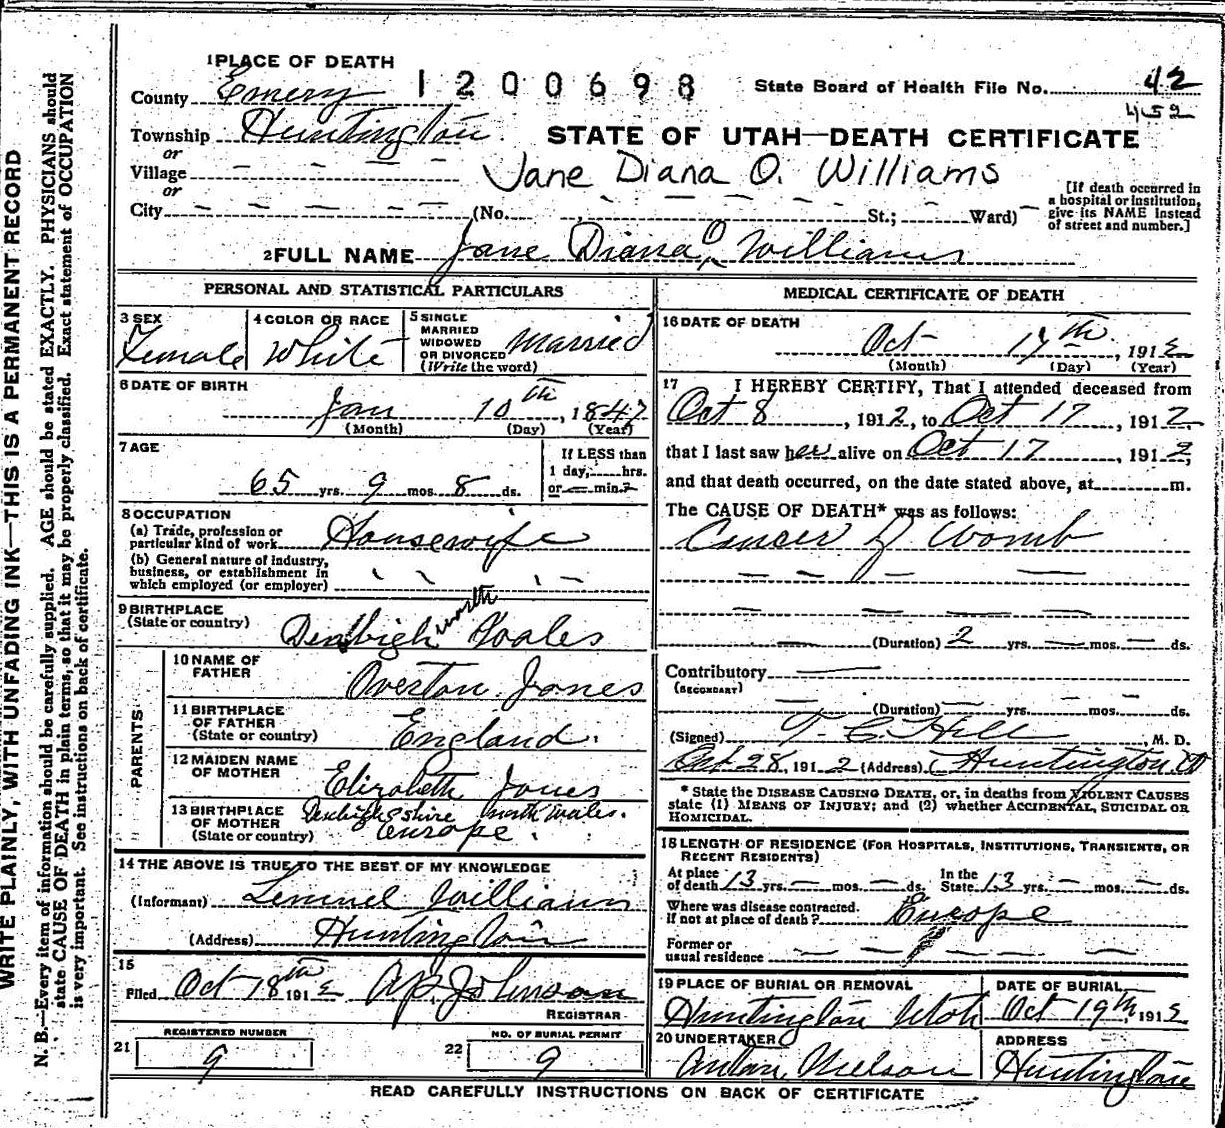 WRITE PLAINLY, WITH UNFADING INK—THIS IS A PERMANENT RECORD
N. B.—Every item of information should be carefully supplied. AGE should be stated EXACTLY. PHYSICIANS should
state CAUSE OF DEATH in plain terms, so that it may be properly classified. Exact statement of OCCUPATION
is very important. See instructions on back of certificate.
1 PLACE OF DEATH
County Emery
1200698
State Board of Health File No. 42
452
Township Huntington
or
STATE OF UTAH—DEATH CERTIFICATE
Village
or
Jane Diana O. Williams
City (No. St.; Ward)
[If death occurred in
a hospital or institution,
give its NAME instead
of street and number.]
2 FULL NAME Jane Diana O Williams
PERSONAL AND STATISTICAL PARTICULARS
3 SEX
Female
4 COLOR OR RACE
White
5 SINGLE
MARRIED
WIDOWED
OR DIVORCED
(Write the word)
Married
6 DATE OF BIRTH
Jan 10th, 1847
(Month) (Day) (Year)
7 AGE
65 yrs. 9 mos. 8 ds.
If LESS than
1 day, hrs.
or min.?
8 OCCUPATION
(a) Trade, profession or
particular kind of work Housewife
(b) General nature of industry,
business, or establishment in
which employed (or employer)
9 BIRTHPLACE
(State or country)
Denbigh north Wales
PARENTS
10 NAME OF
FATHER
Overton Jones
11 BIRTHPLACE
OF FATHER
(State or country)
England.
12 MAIDEN NAME
OF MOTHER
Elizabeth Jones
13 BIRTHPLACE
OF MOTHER
(State or country)
Denbighshire north Wales.
europe.
14 THE ABOVE IS TRUE TO THE BEST OF MY KNOWLEDGE
(Informant) Lemuel Williams
(Address) Huntington
15
Filed Oct 18th 1912 A.P. Johnson
REGISTRAR
REGISTERED NUMBER
21 9
NO. OF BURIAL PERMIT
22 9
MEDICAL CERTIFICATE OF DEATH
16 DATE OF DEATH
Oct 17th, 1912
(Month) (Day) (Year)
17 I HEREBY CERTIFY, That I attended deceased from
Oct 8, 1912, to Oct 17, 1912
that I last saw her alive on Oct 17, 1912,
and that death occurred, on the date stated above, at m.
The CAUSE OF DEATH* was as follows:
Cancer of Womb
(Duration) 2 yrs. mos. ds.
Contributory
(SECONDARY)
(Duration) yrs. mos. ds.
(Signed) T. C. Hill, M. D.
28, 1912 (Address) Huntington
* State the DISEASE CAUSING DEATH, or, in deaths from VIOLENT CAUSES
state (1) MEANS OF INJURY; and (2) whether ACCIDENTAL, SUICIDAL OR
HOMICIDAL.
18 LENGTH OF RESIDENCE (FOR HOSPITALS, INSTITUTIONS, TRANSIENTS, OR
RECENT RESIDENTS)
At place
of death 13 yrs. mos. ds.
In the
State 13 yrs. mos. ds.
Where was disease contracted.
if not at place of death? Europe
Former or
usual residence
19 PLACE OF BURIAL OR REMOVAL
Huntington Utah
DATE OF BURIAL
Oct 19th, 1912
20 UNDERTAKER
Anton Nielson
ADDRESS
Huntington
READ CAREFULLY INSTRUCTIONS ON BACK OF CERTIFICATE